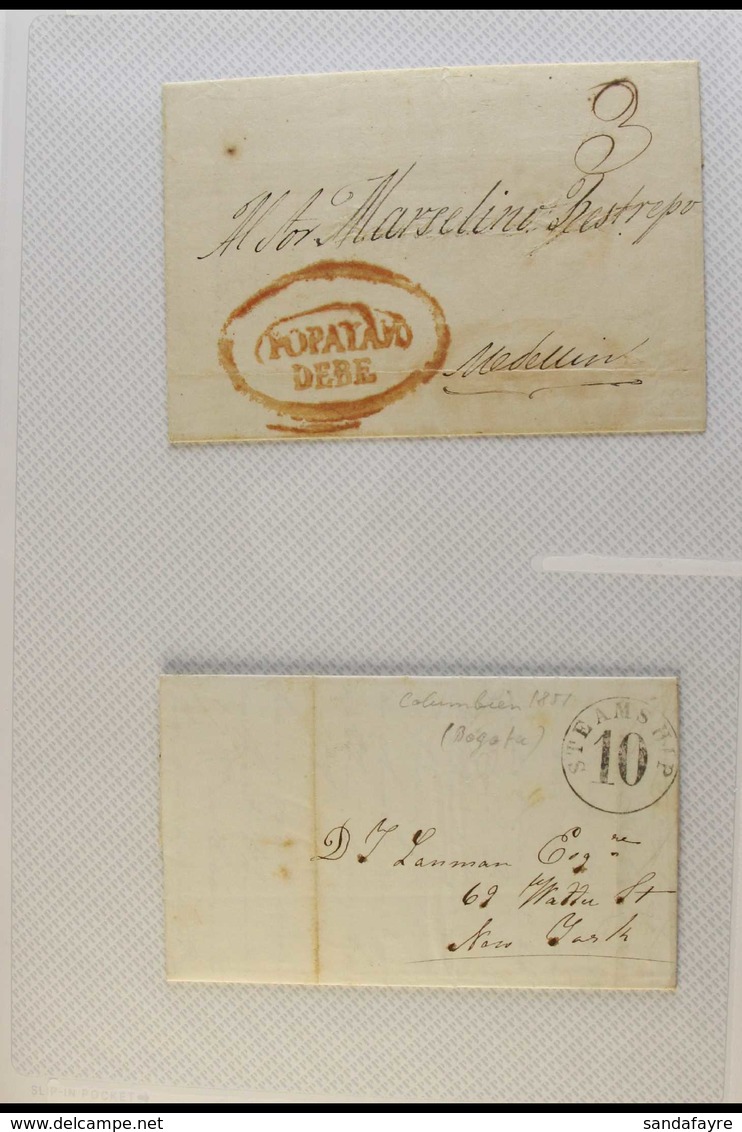 3
Al Sor. Marselino Restrepo
POPAYAN
DEBE
Medellin
Columbien 1851
(Bogota)
STEAMSHIP
10
D T Lanman Esqre
69 Water St
New York
SLIP-IN POCKET
sandafayre